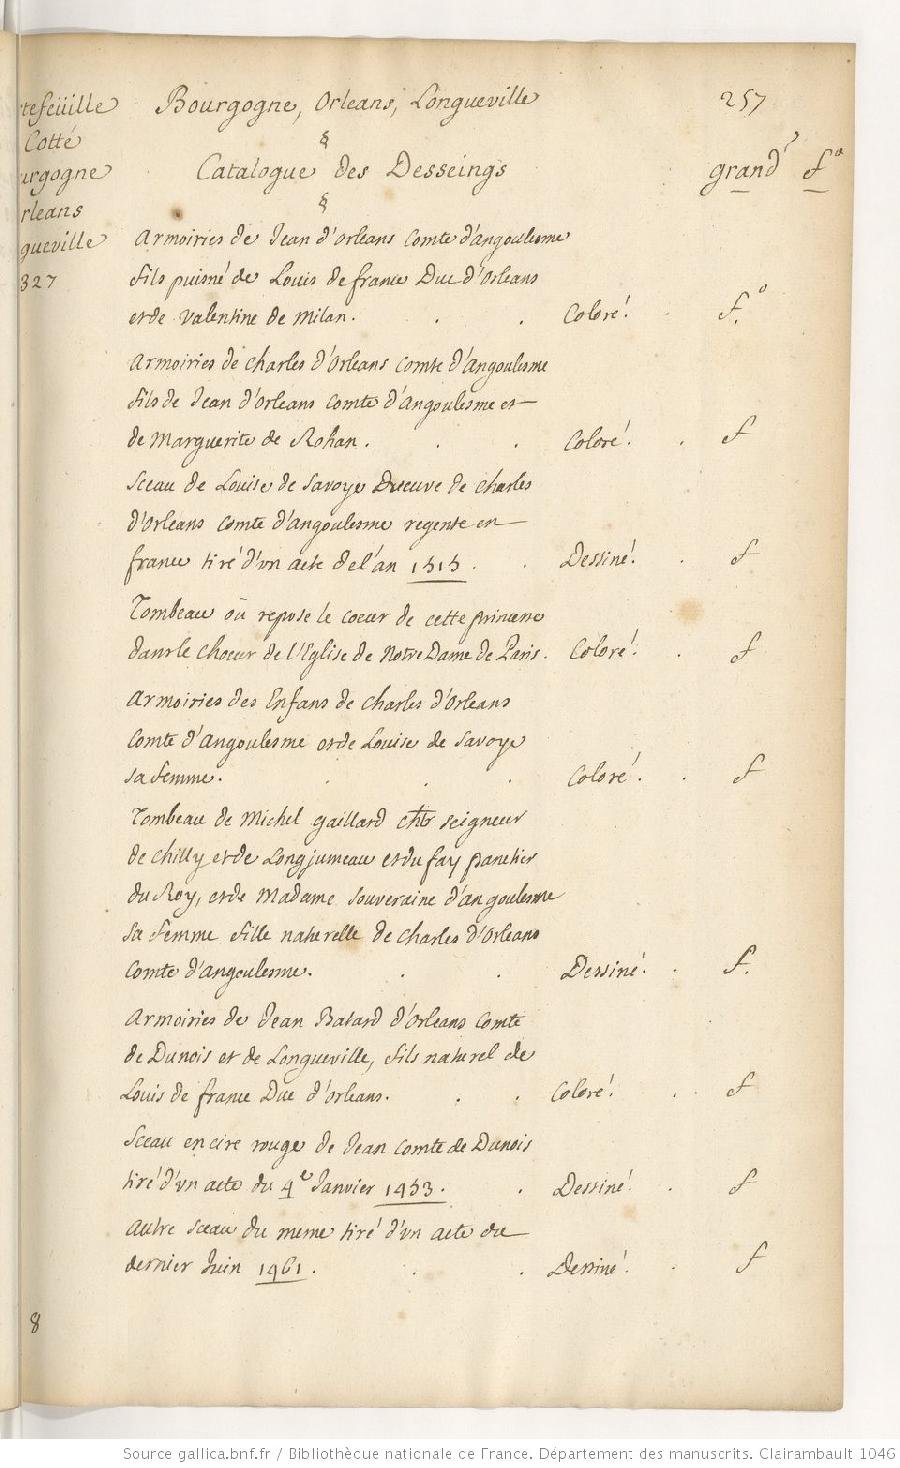 tefeüille Bourgogne, Orleans, Longueville 257
Cotté §
urgogne Catalogue des Desseings grand fo
rleans §
gueville Armoiries de Jean d'Orleans Comte d'angoulesme
327 fils puisné de Louis de france Duc d'Orleans
et de Valentine de Milan. Coloré. fo
Armoiries de Charles d'Orleans Comte d'Angoulesme
fils de Jean d'Orleans Comte d'Angoulesme et
de Marguerite de Rohan. Coloré. f
Sceau de Louise de Savoye Veuve de Charles
d'Orleans Comte d'Angoulesme regente en
france tiré d'vn acte de l'an 1515. Dessiné. f
Tombeau où repose le coeur de cette princesse
dans le Choeur de l'Eglise de Notre Dame de Paris. Coloré. f
Armoiries des Enfans de Charles d'Orleans
Comte d'Angoulesme et de Louise de Savoye
sa femme. Coloré. f
Tombeau de Michel gaillard chlr seigneur
de Chilly et de Longjumeau et du fay panetier
du Roy, et de Madame Souveraine d'angoulesme
sa femme fille naturelle de Charles d'Orleans
Comte d'Angoulesme. Dessiné. f.
Armoiries de Jean Batard d'Orleans Comte
de Dunois et de Longueville, fils naturel de
Louis de france Duc d'Orleans. Coloré. f
Sceau en cire rouge de Jean Comte de Dunois
tiré d'vn acte du 4e Janvier 1453. Dessiné. f
Autre sceau du mesme tiré d'vn acte du
dernier Juin 1461. Dessiné. f
8
Source gallica.bnf.fr / Bibliothèque nationale de France. Département des manuscrits. Clairambault 1046